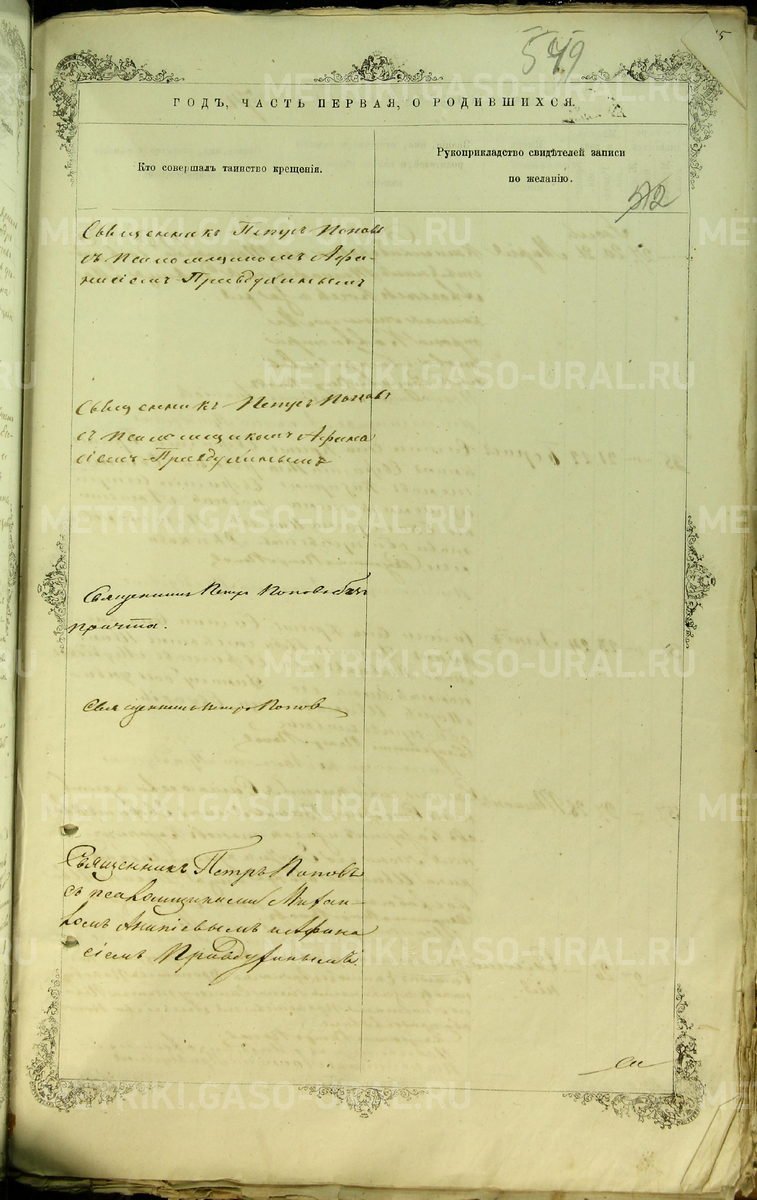 549
5
ГОДЪ, ЧАСТЬ ПЕРВАЯ, О РОДИВШИХСЯ.
Кто совершалъ таинство крещенія.
Рукоприкладство свидѣтелей записи
по желанію.
512
Священникъ Петръ Поповъ
съ псаломщикомъ Афа-
насіемъ Правдухинымъ
Священникъ Петръ Поповъ
съ псаломщикомъ Афана
сіемъ Правдухинымъ
Священникъ Петръ Поповъ безъ
причта.
Священникъ Петръ Поповъ
Священникъ Петръ Поповъ
съ псаломщиками Михаи-
ломъ Ананіевымъ и Афана
сіемъ Правдухинымъ.
METRIKI.GASO-URAL.RU